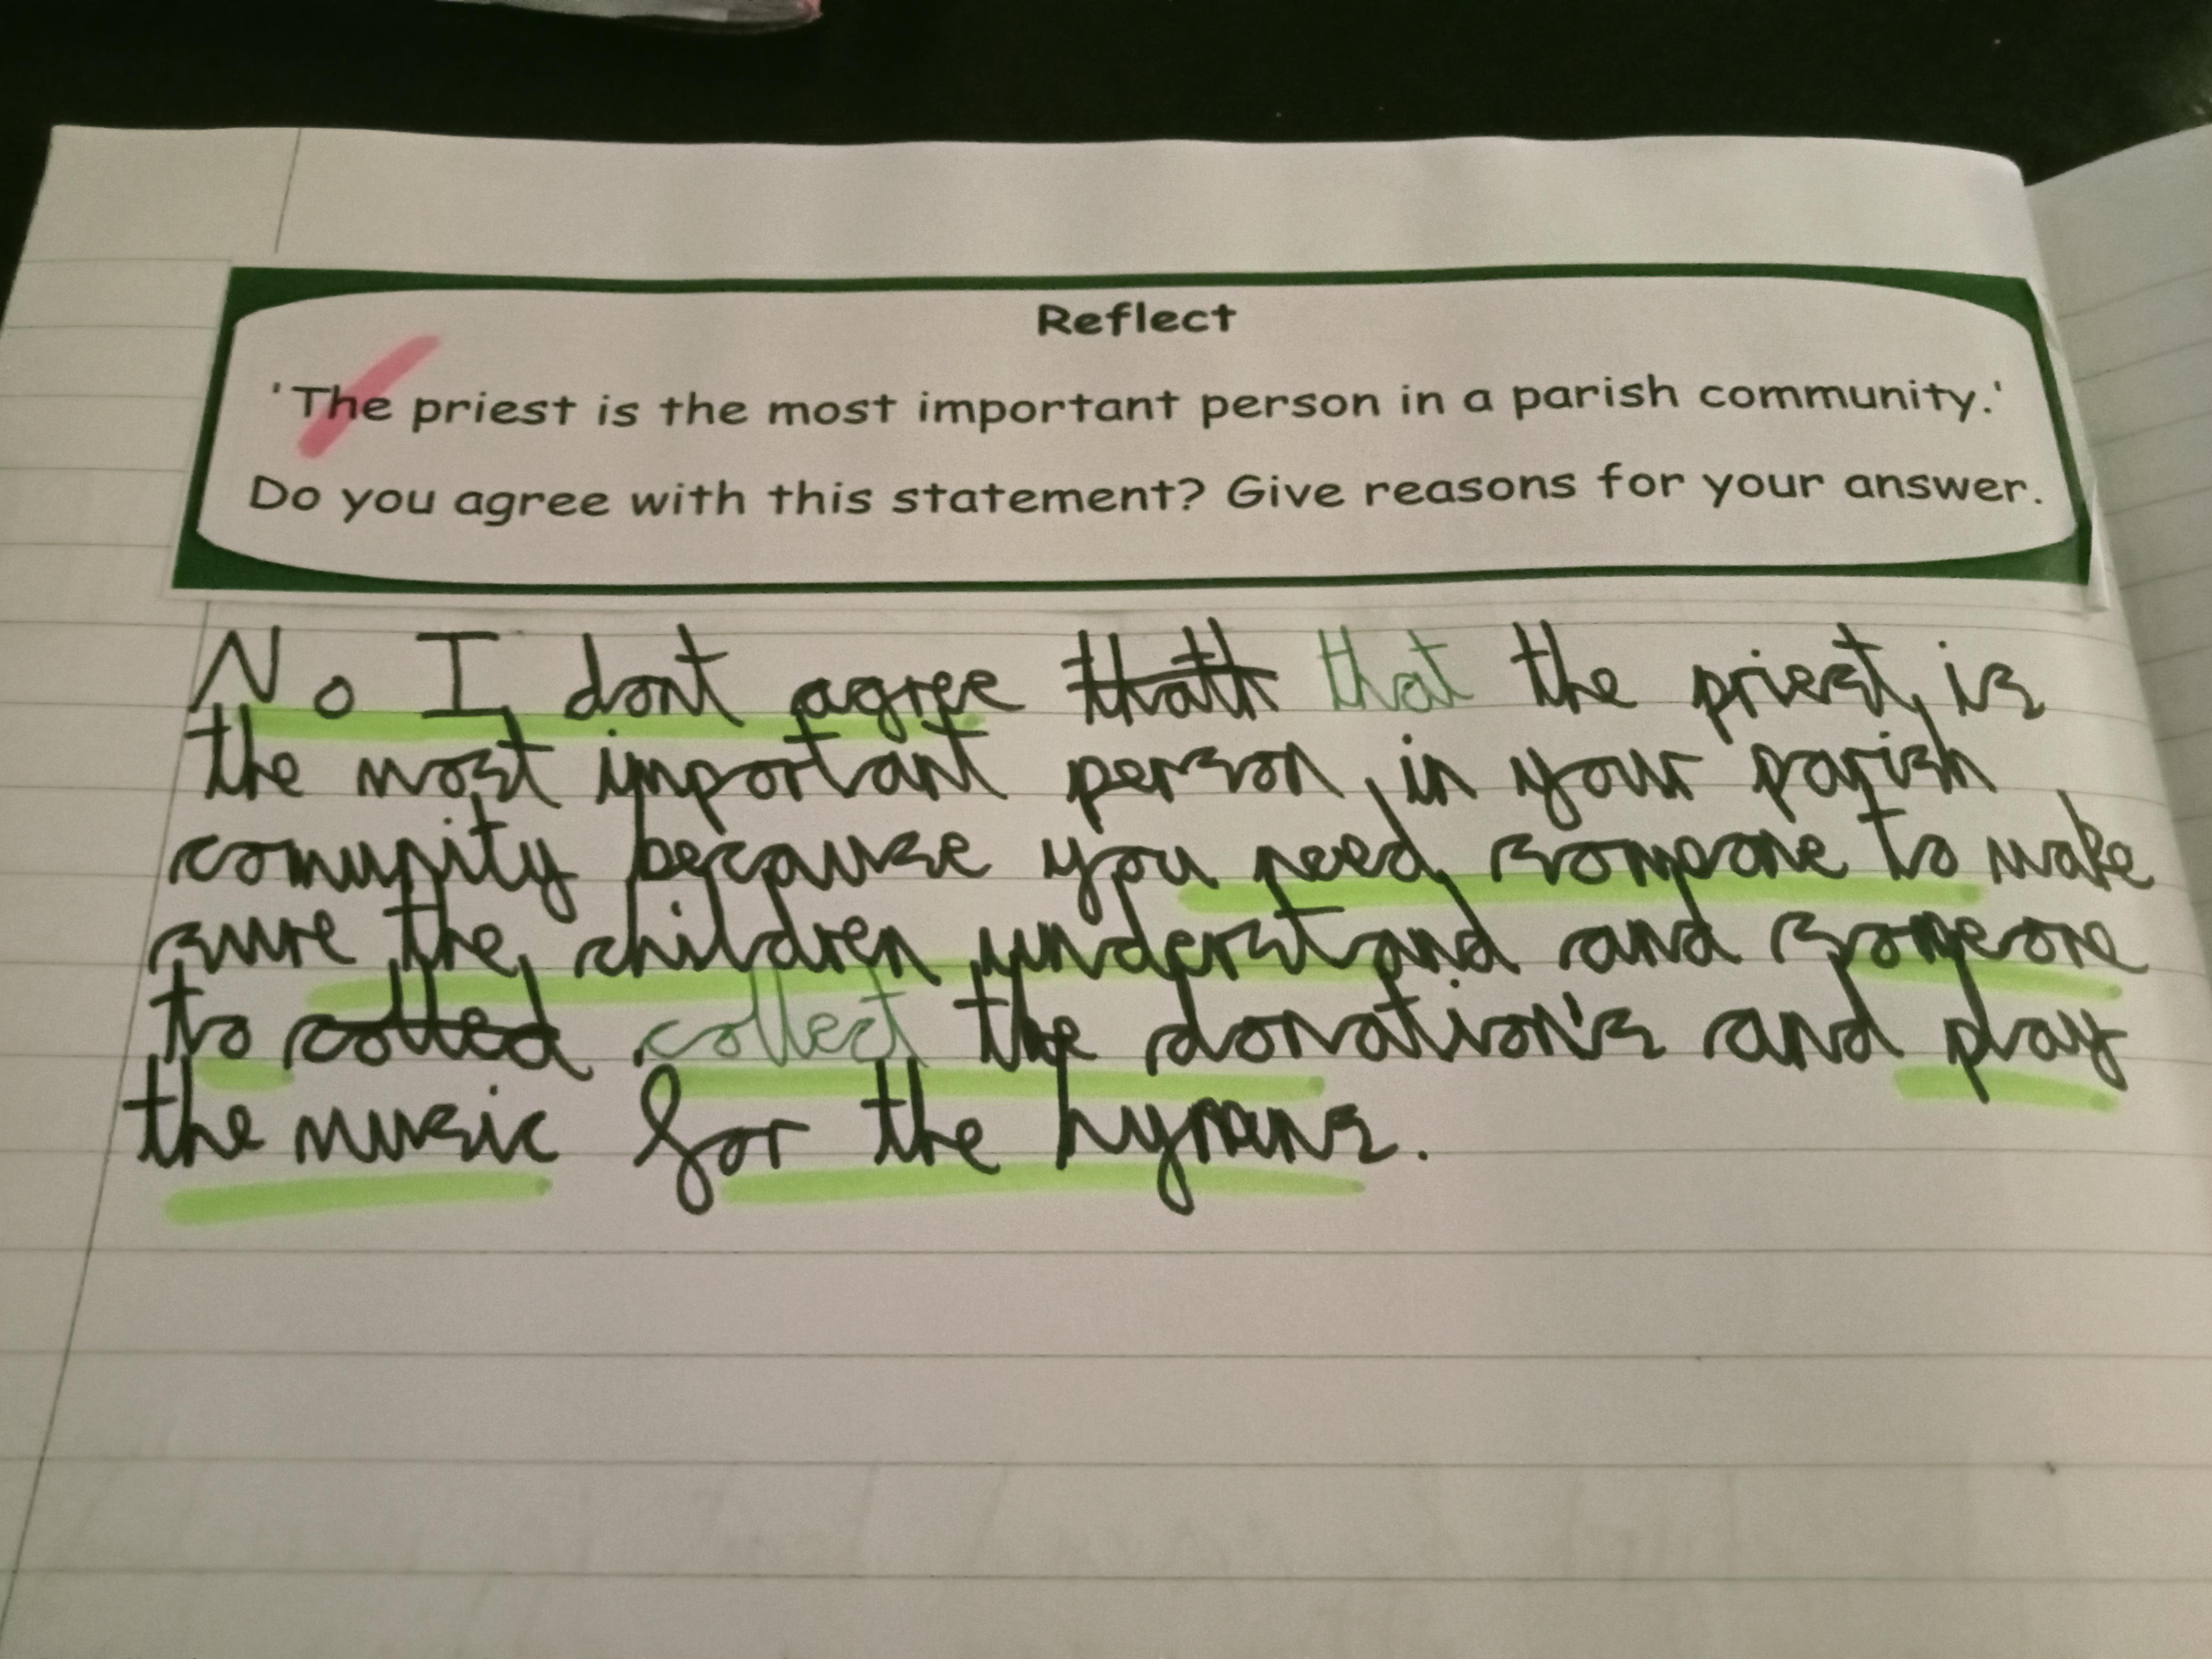 Reflect
'The priest is the most important person in a parish community.'
Do you agree with this statement? Give reasons for your answer.
No I dont agree thath that the priest is
the most important person in your parish
comunity because you need someone to make
sure the children understand and someone
to colled collect the donation's and play
the music for the hymns.